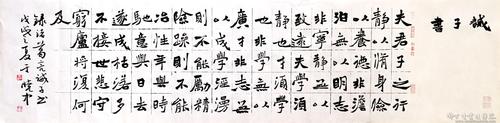 誡子書
夫君子之行
靜以修身儉
以養德非澹
泊無以明志
非寧靜無以
致遠夫學須
靜也才須學
也非學無以
廣才非志無
以成學淫漫
則不能勵精
險躁則不能
冶性年與時
馳意與日去
遂成枯落多
不接世悲守
窮廬將復何
及
錄諸葛亮誡子書
戊戌之夏